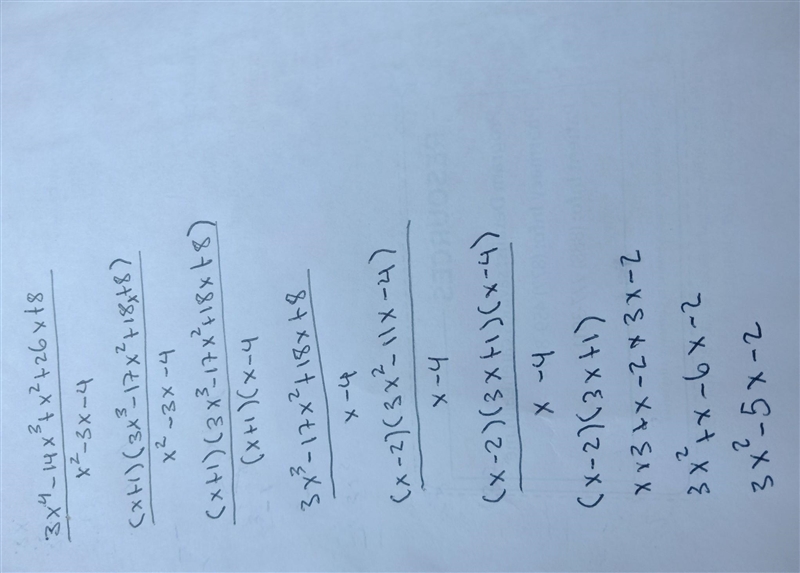 3x⁴-14x³+x²+26x+8
x²-3x-4
(x+1)(3x³-17x²+18x+8)
x²-3x-4
(x+1)(3x³-17x²+18x+8)
(x+1)(x-4
3x³-17x²+18x+8
x-4
(x-2)(3x²-11x-4)
x-4
(x-2)(3x+1)(x-4)
x-4
(x-2)(3x+1)
xx3+x-2x3x-2
3x²+x-6x-2
3x²-5x-2
RESOURCES